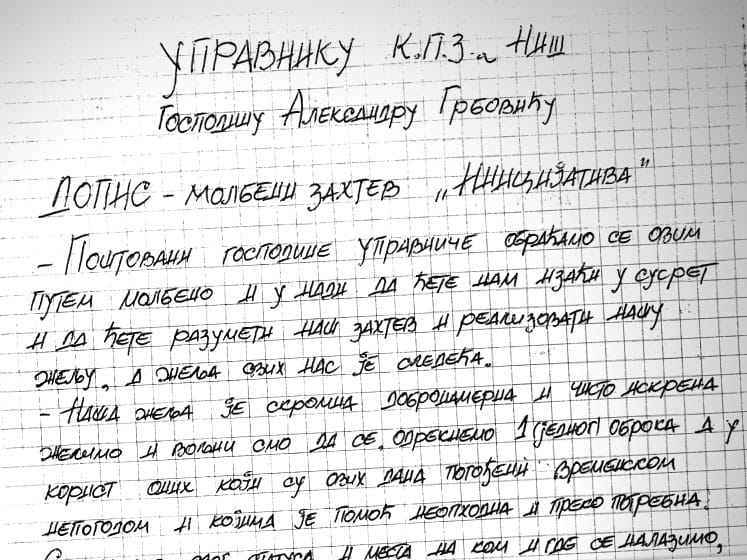 УПРАВНИКУ К.П.З-а НИШ
Господину Александру Грбовићу
ДОПИС - молбени захтев „Иницијатива"
- Поштовани господине управниче обраћамо се овим
путем молбено и у нади да ћете нам изаћи у сусрет
и да ћете разумети наш захтев и реализовати нашу
жељу, а жеља свих нас је следећа.
- Наша жеља је скромна добронамерна и чисто искрена
желимо и вољни смо да се, одрекнемо 1 (једног) оброка а у
корист оних који су ових дана погођени временском
непогодом и којима је помоћ неопходна и преко потребна.
статуса и места на ком и где се налазимо,